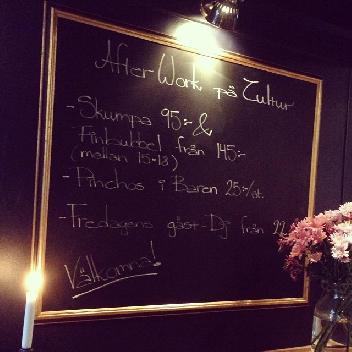 After Work på Kultur
- Skumpa 95:- &
Finbubbel från 145:-
(mellan 15-18)
- Pinchos i Baren 25:-/st.
- Fredagens gäst-Dj från 22
Välkomna!